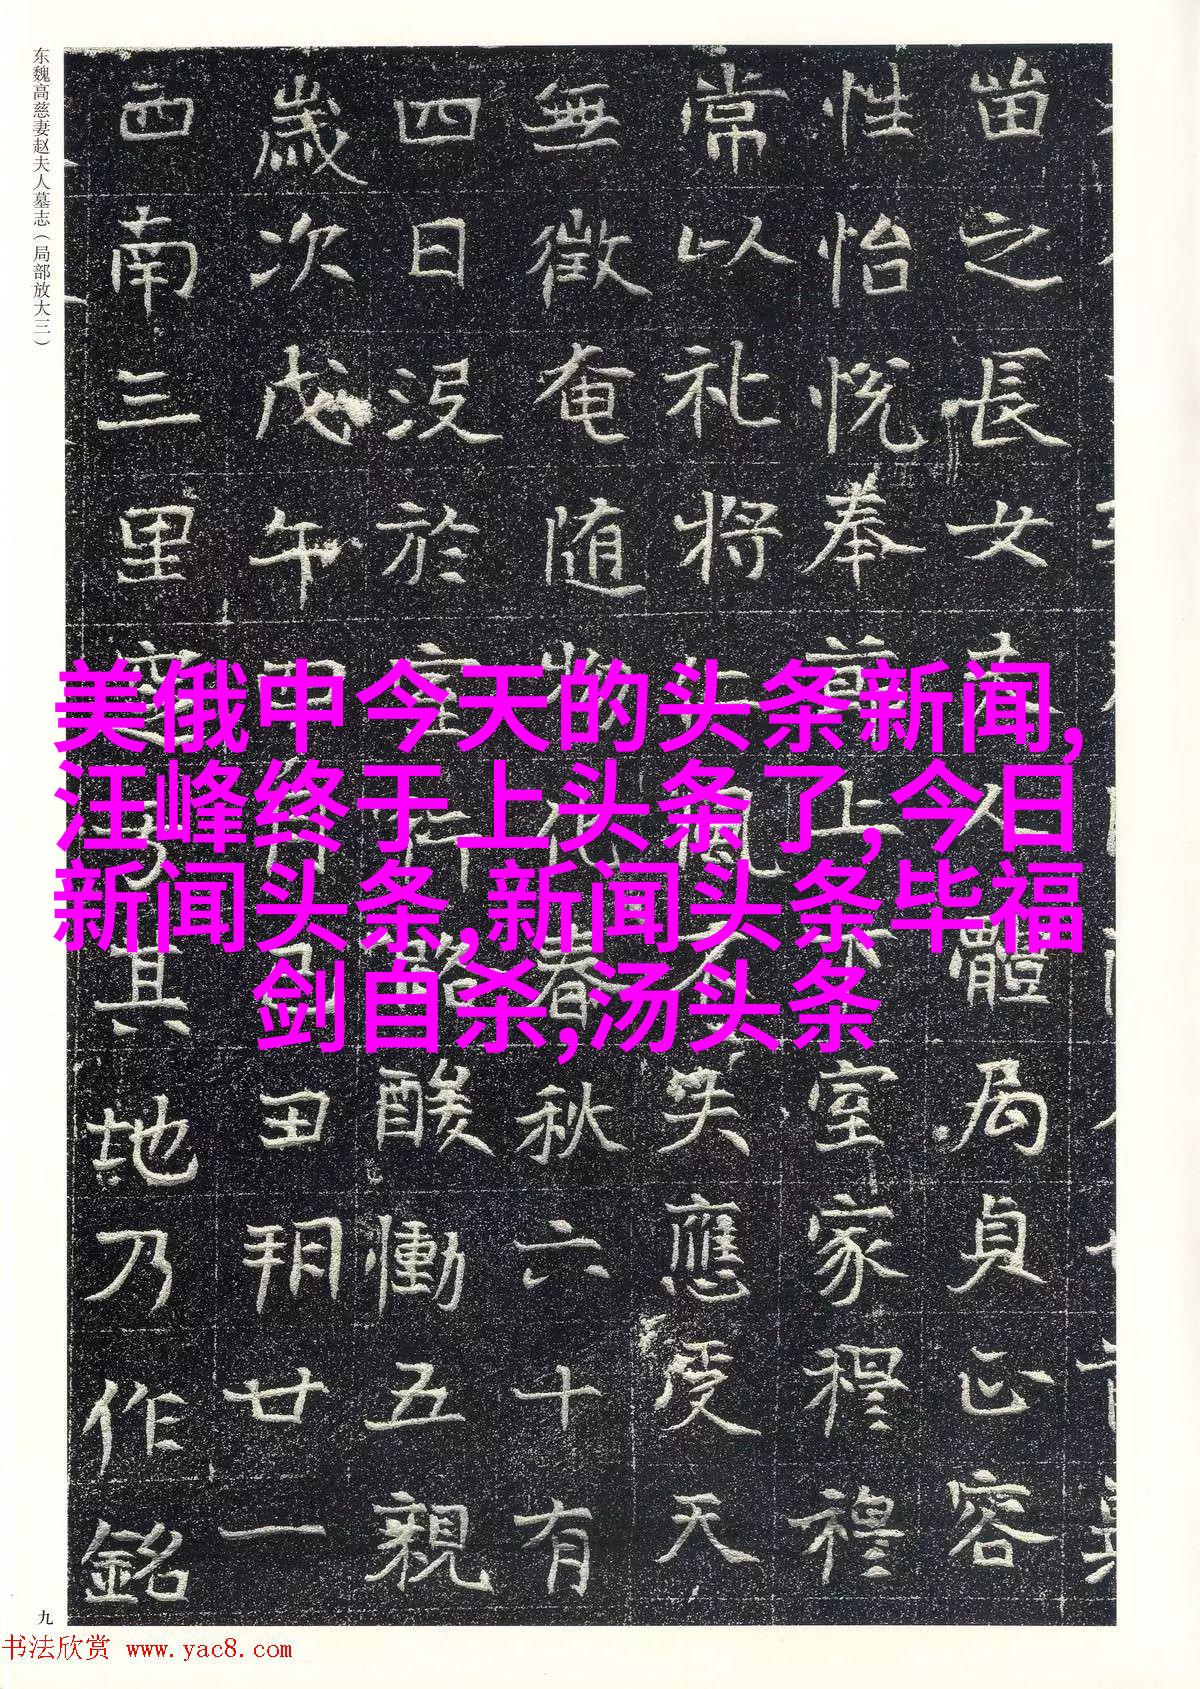 东魏高慈妻赵夫人墓志（局部放大三）
苗之長女夫人體局貞正容
性怡悦奉前上下室家穆穆
常以礼将仁風不失應受天
無徵奄随物化春秋六十有
四日没於室行路酸慟五親
歲次戊午四月己丑朔廿一
西南三里其地乃作銘
美俄中今天的头条新闻,
汪峰终于上头条了,今日
新闻头条,新闻头条毕福
剑自杀,汤头条
九
书法欣赏 www.yac8.com